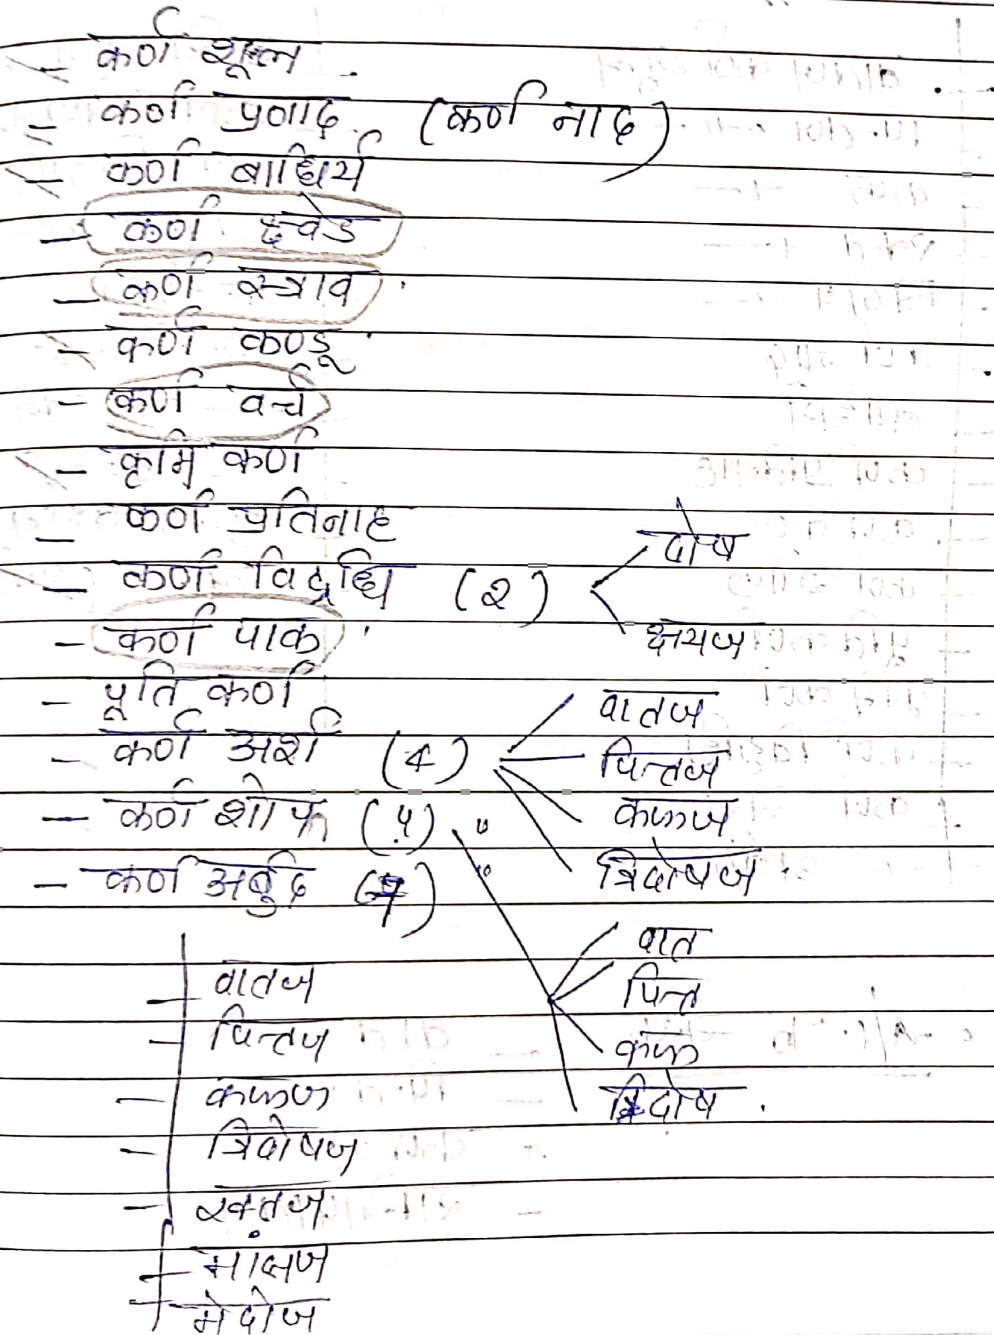 - कर्ण शूल
- कर्ण प्रणाद (कर्ण नाद)
- कर्ण बाधिर्य
- कर्ण क्ष्वेड
- कर्ण स्त्राव
- कर्ण कण्डू
- कर्ण वर्च
- कृमि कर्ण
- कर्ण प्रतिनाह
- कर्ण विद्रधि (२)
दोष
क्षयज
- कर्ण पाक
- पूति कर्ण
- कर्ण अर्श (4)
वातज
पित्तज
कफज
त्रिदोषज
- कर्ण शोफ (५)
वात
पित्त
कफ
त्रिदोष
- कर्ण अर्बुद (7)
- वातज
- पित्तज
- कफज
- त्रिदोषज
- रक्तज
- मांसज
- मेदोज